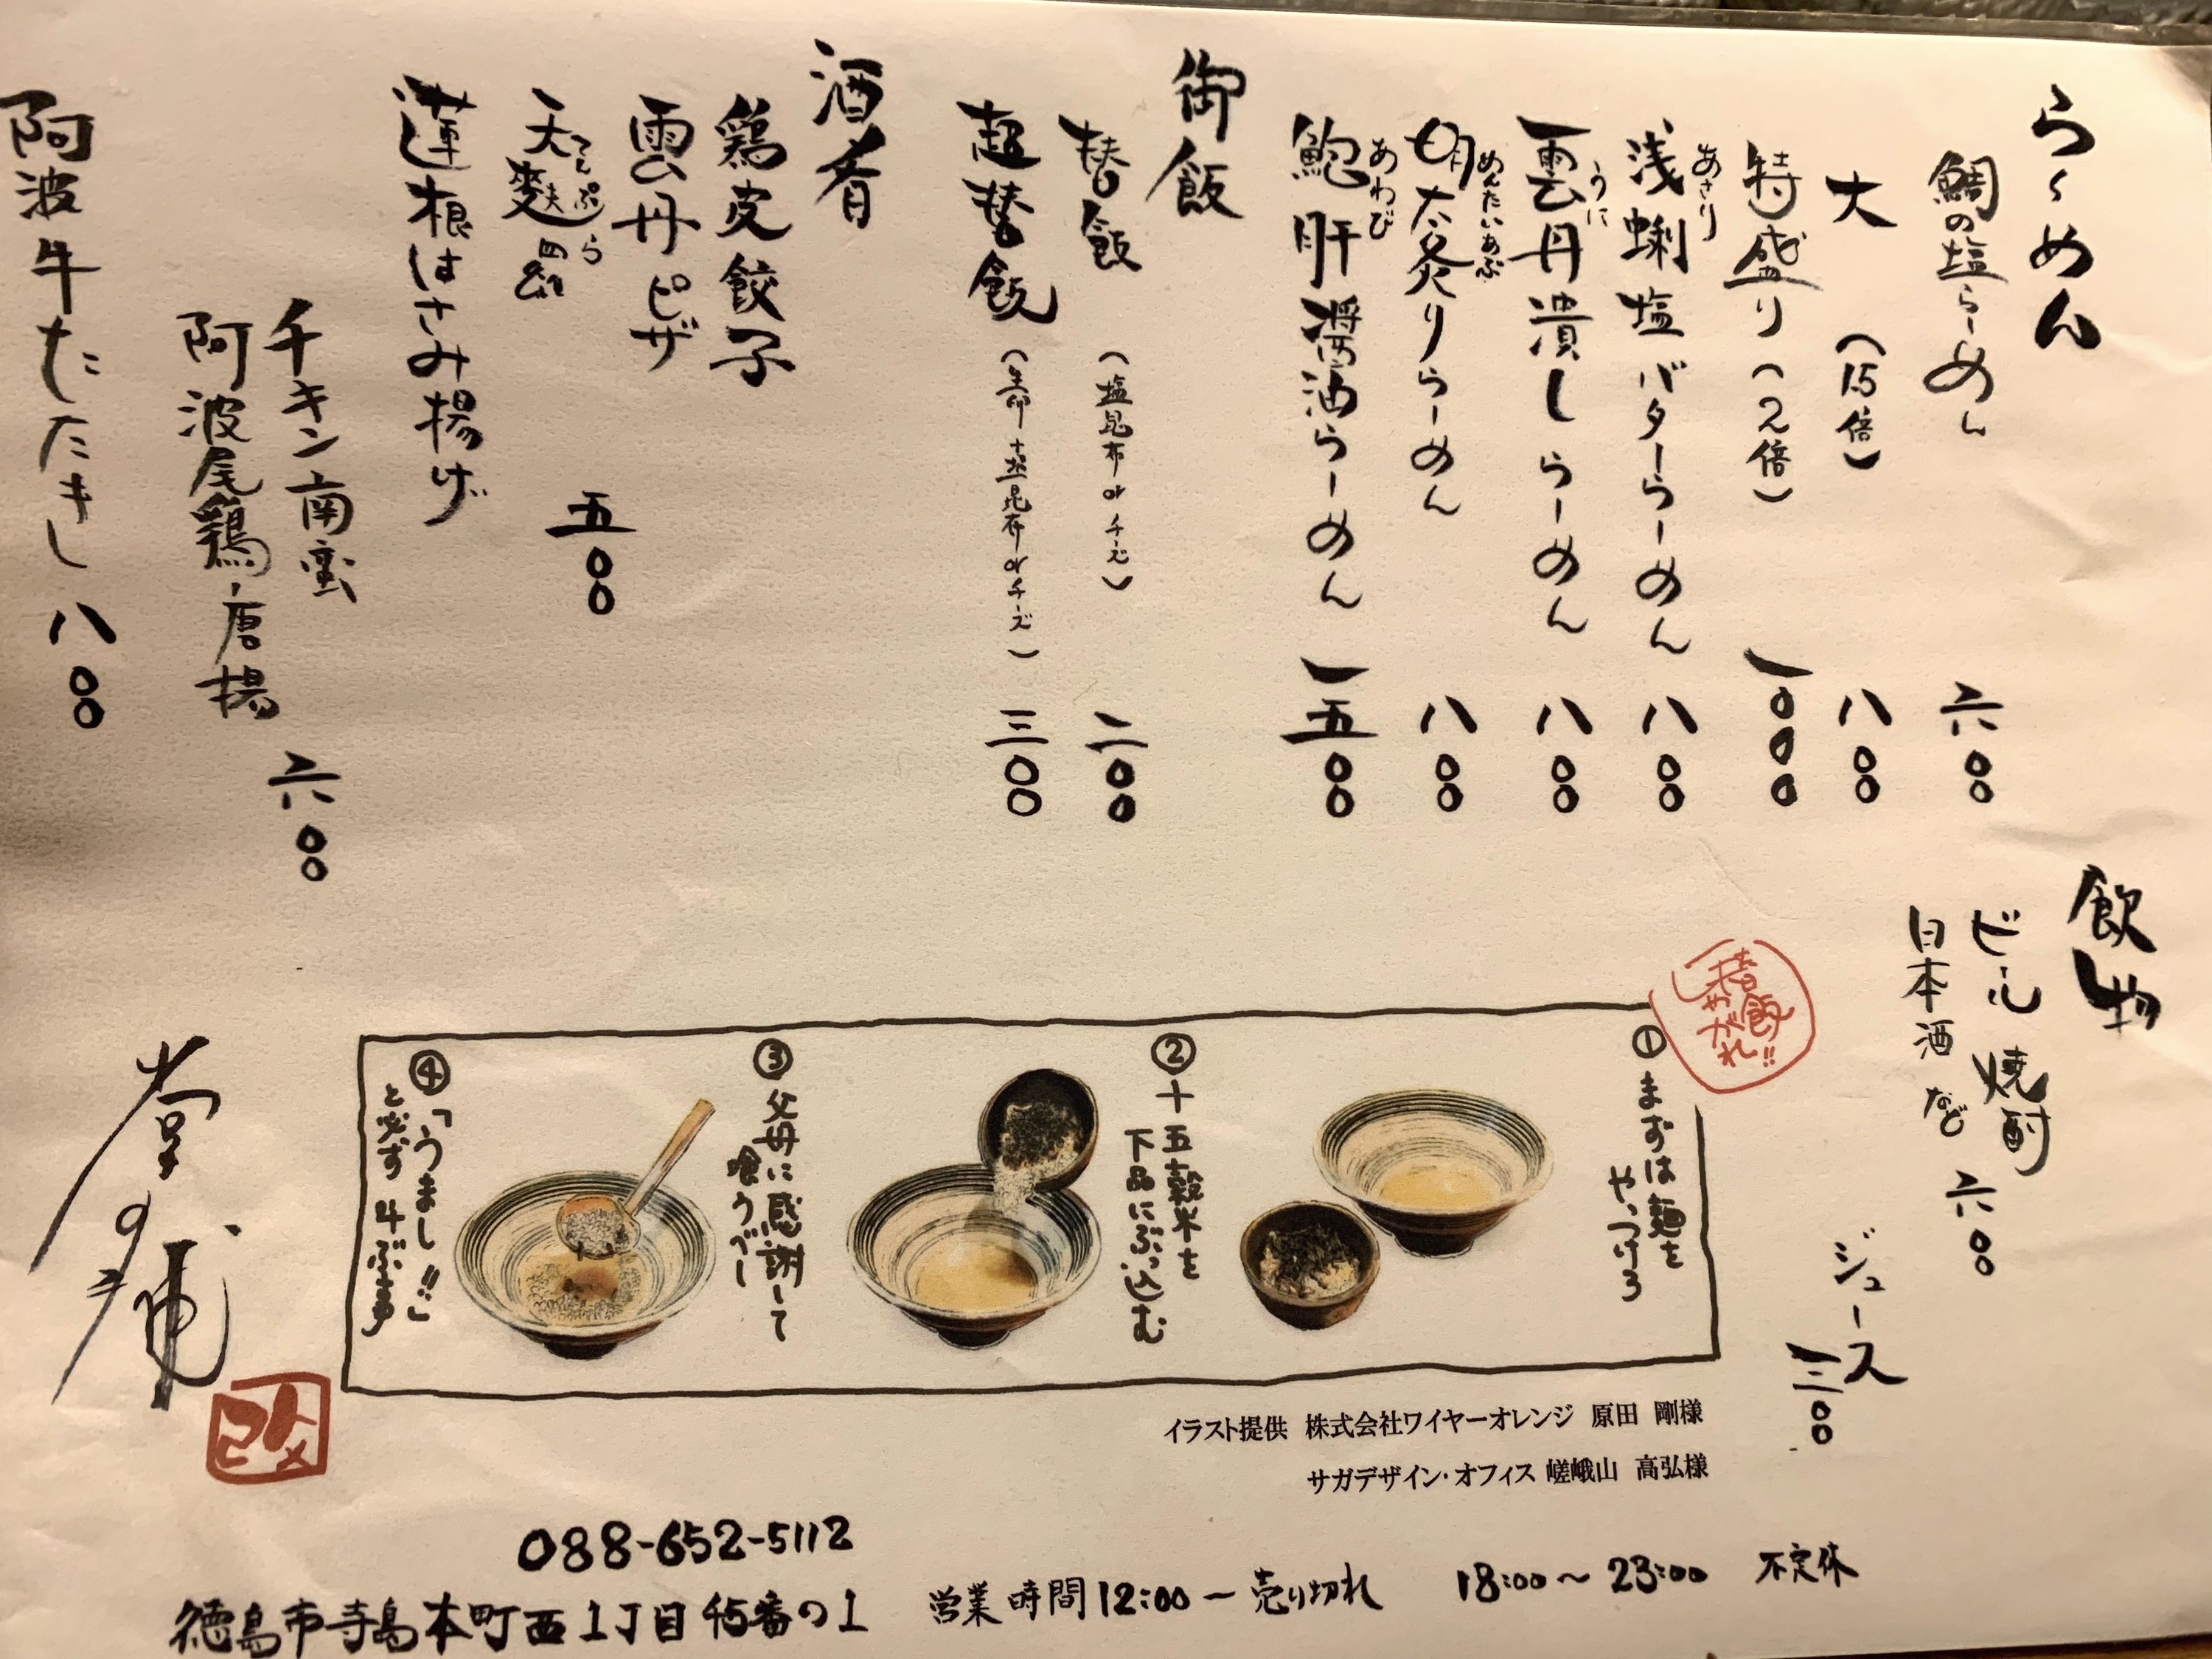 らーめん
鯛の塩らーめん 六〇〇
大 (1.5倍) 八〇〇
特盛り(2倍) 一〇〇〇
浅蜊塩バターらーめん 八〇〇
あさり
雲丹潰しらーめん 八〇〇
うに
明太炙りらーめん 八〇〇
めんたいあぶ
鮑肝醤油らーめん 一五〇〇
あわび
御飯
替飯(塩昆布orチーズ) 二〇〇
超替飯(生卵+塩昆布orチーズ) 三〇〇
酒肴
鶏皮餃子
雲丹ピザ
五〇〇
天麩
てんぷら
蓮根はさみ揚げ
チキン南蛮
阿波尾鶏唐揚
六〇〇
阿波牛たたきし 八〇〇
飲物
ビール 焼酎
日本酒 など 六〇〇
ジュース 三〇〇
替飯
しやがれ!!
① まずは麺を
やっつけろ
② 十五穀米を
下品にぶっ込む
③ 父母に感謝して
喰うべし
④ 「うまし!!」
と必ず叫ぶ事
イラスト提供 株式会社ワイヤーオレンジ 原田 剛様
サガデザイン・オフィス 嵯峨山 高弘様
088-652-5112
徳島市寺島本町西1丁目45番の1
営業時間12:00〜売り切れ 18:00〜23:00 不定休